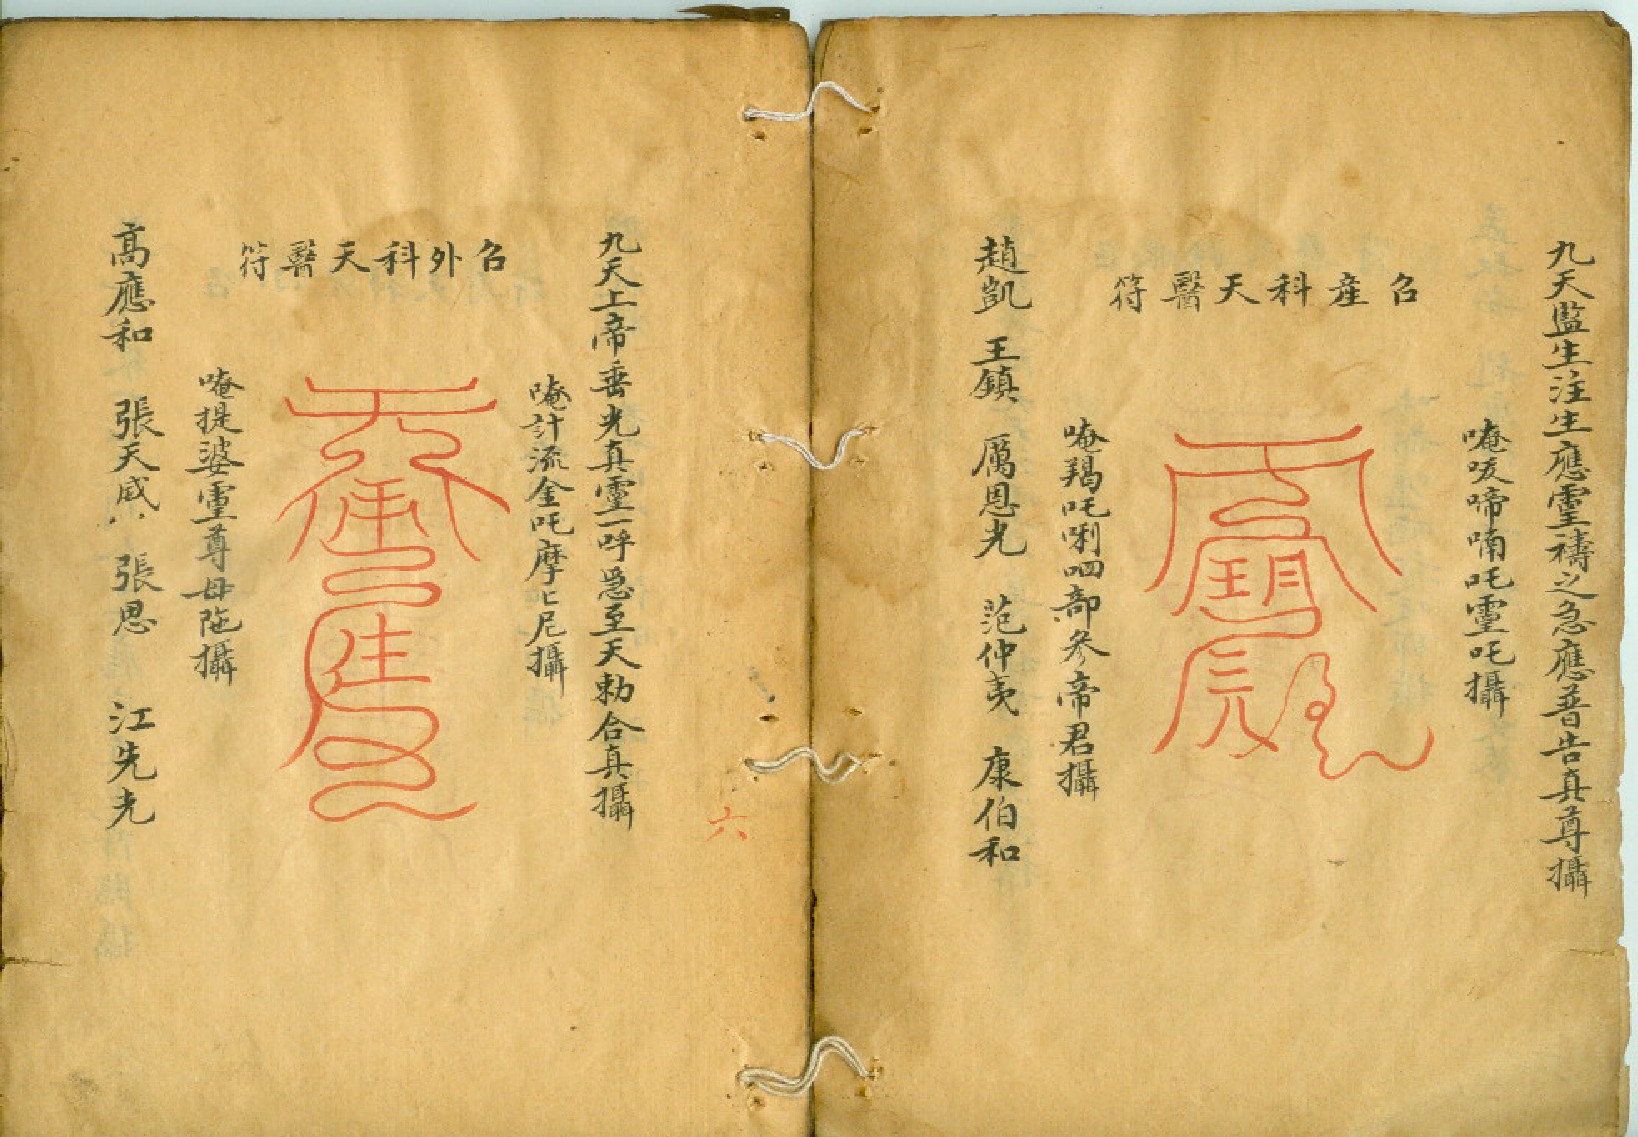 九天監生注生應靈禱之急應普告真尊攝
唵㕹啼喃吒靈吒攝
召產科天醫符
唵羯吒唎呬部參帝君攝
趙凱 王鎮 厲恩光 范仲夷 康伯和
六
九天上帝垂光真靈一呼急至天勅合真攝
唵計流金吒摩匕尼攝
召外科天醫符
唵提婆靈尊母陁攝
高應和 張天威 張恩 江先光